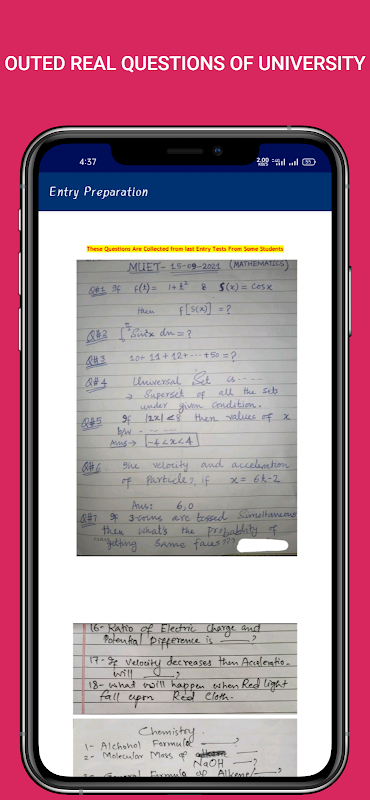 OUTED REAL QUESTIONS OF UNIVERSITY
4:37
Entry Preparation
These Questions Are Collected from last Entry Tests From Some Students
MUET- 15-09-2021 (MATHEMATICS)
Q#1 If f(t) = 1+t² & S(x) = cosx
then f[S(x)] = ?
Q#2 Sin²x dx = ?
Q#3 10+ 11+12+ --- +50 = ?
Q#4 Universal Set is -----
→ Superset of all the sets
under given condition.
Q#5 If |2x|<8 then values of x
b/w - - - -
Ans→ -4<x<4
Q#6 The velocity and acceleration
of Particle?, if x = 6t-2
Ans: 6,0
Q#7 If 3-coins are tossed Simultaneous
then what's the probablity of
getting same faces???
16- Ratio of Electric Charge and
Potential Difference is ____?
17- If velocity decreases then Acceleratio-
will ____?
18- what will happen when Red light
fall upon Red Cloth-
Chemistry.
1- Alchohol Formula ____?
2- Molecular Mass of ____?
NaOH
General Formula of Alkene/____?